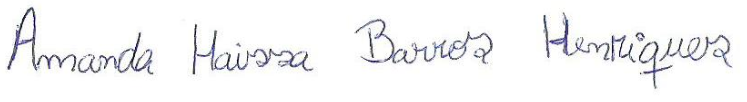 Amanda Haissa Barros Henriques